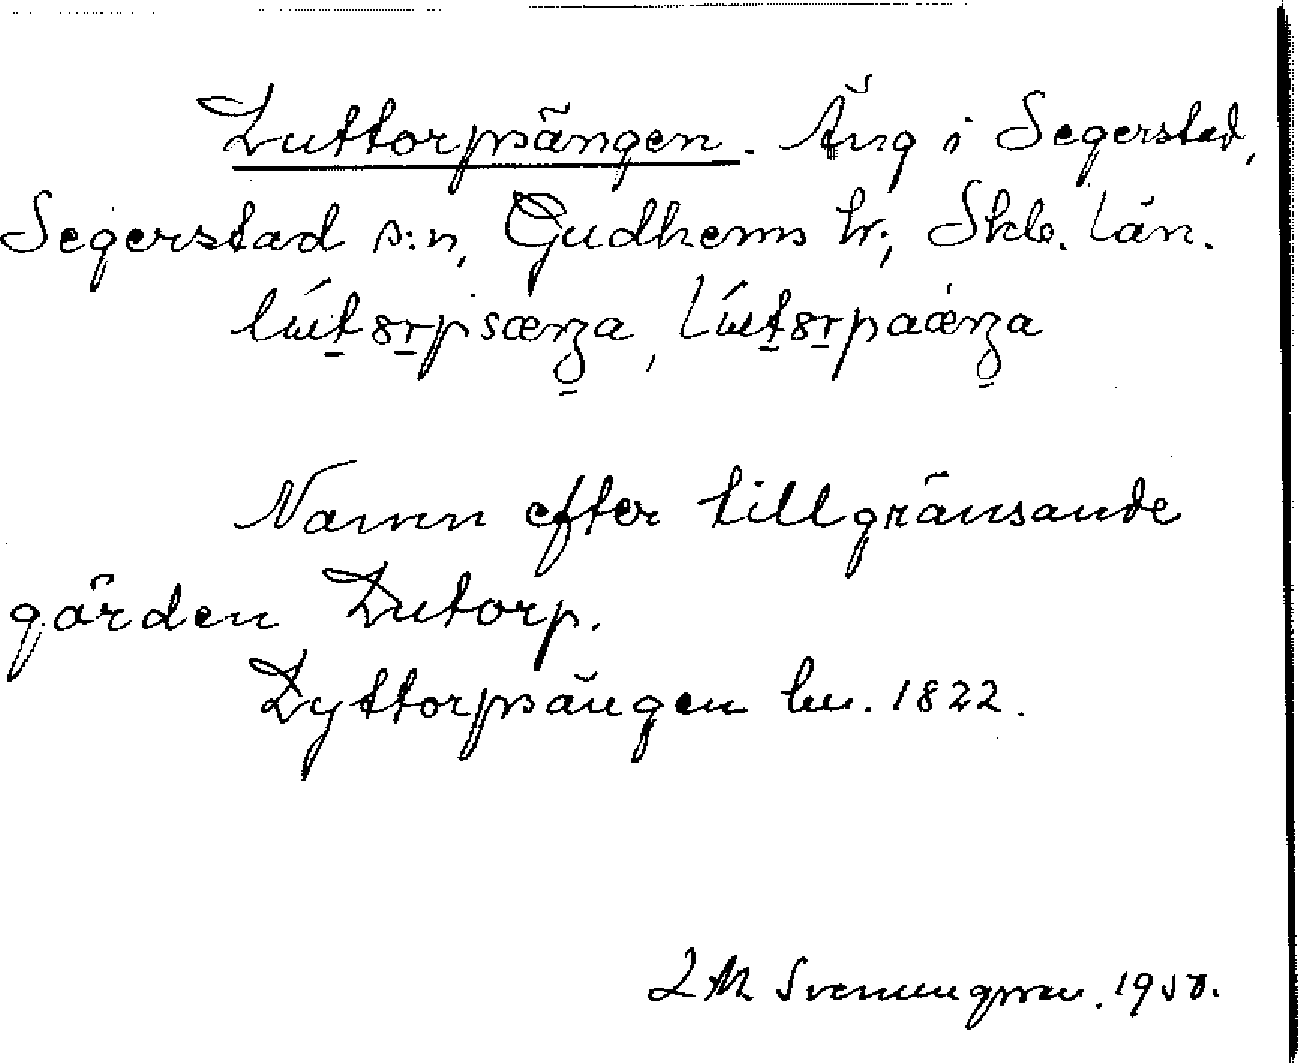 Luttorpsängen. Äng i Segerstad,
Segerstad s:n, Gudhems hr; Skb. län.
Namn efter tillgränsande
gården Lutorp.
Lyttorpsängen hu. 1822.
L M Svenungsson. 1950.